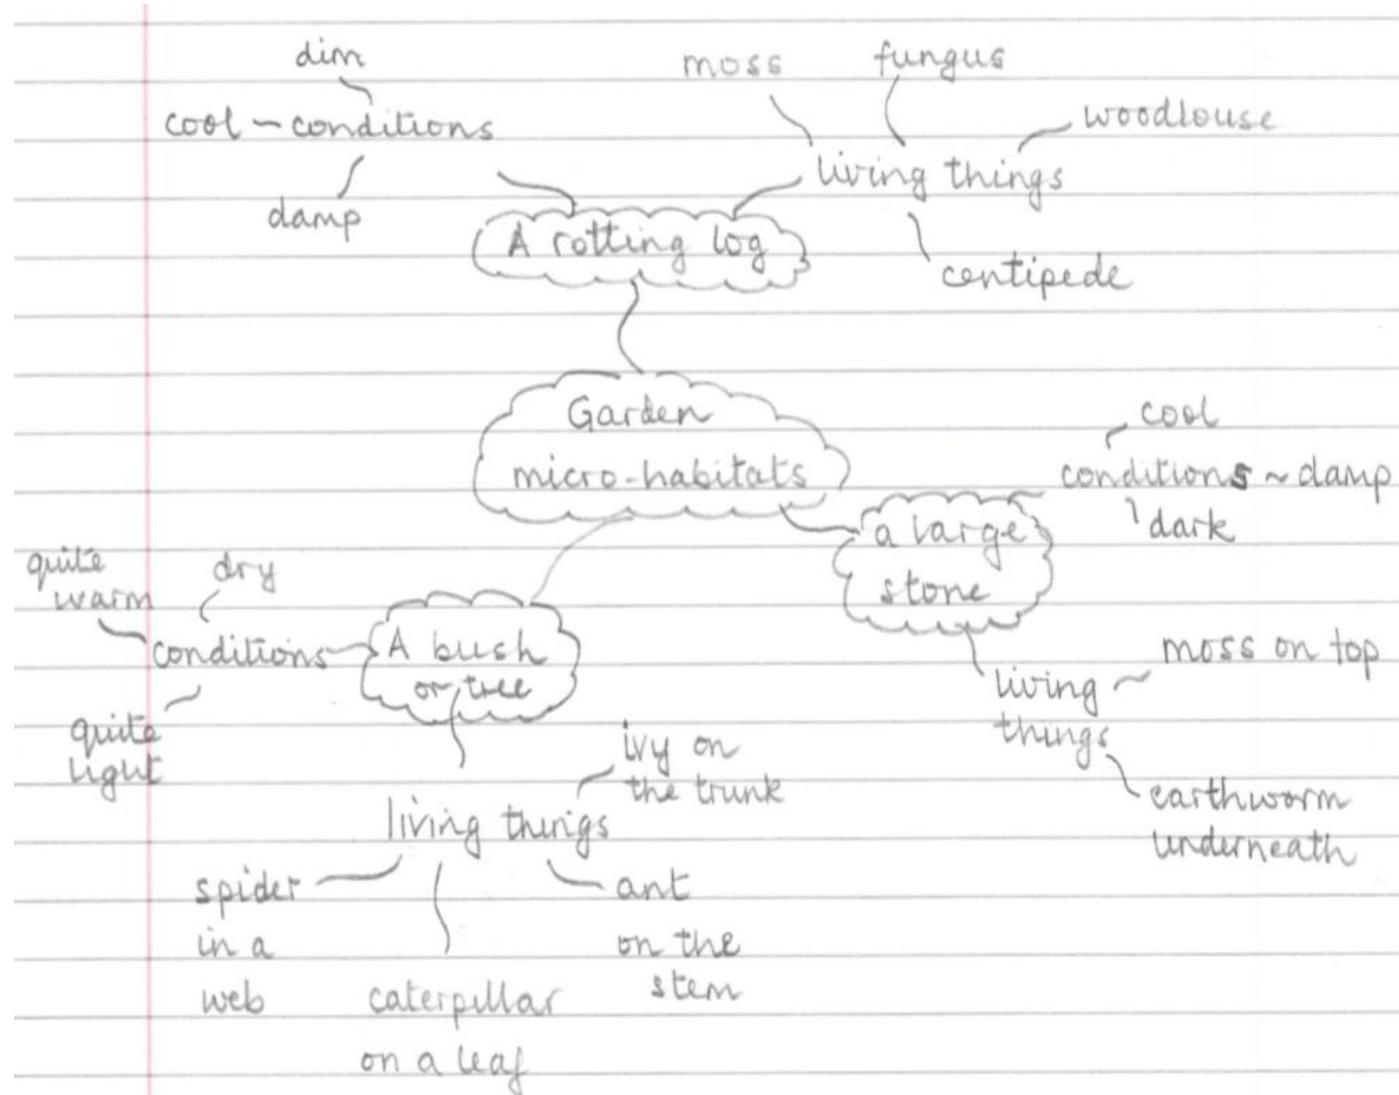 dim
cool - conditions
damp
moss
fungus
woodlouse
living things
centipede
A rotting log
Garden
micro-habitats
cool
conditions ~ damp
dark
a large
stone
living
things
moss on top
earthworm
underneath
quite
warm
dry
conditions
quite
light
A bush
or tree
living things
ivy on
the trunk
spider
in a
web
caterpillar
on a leaf
ant
on the
stem